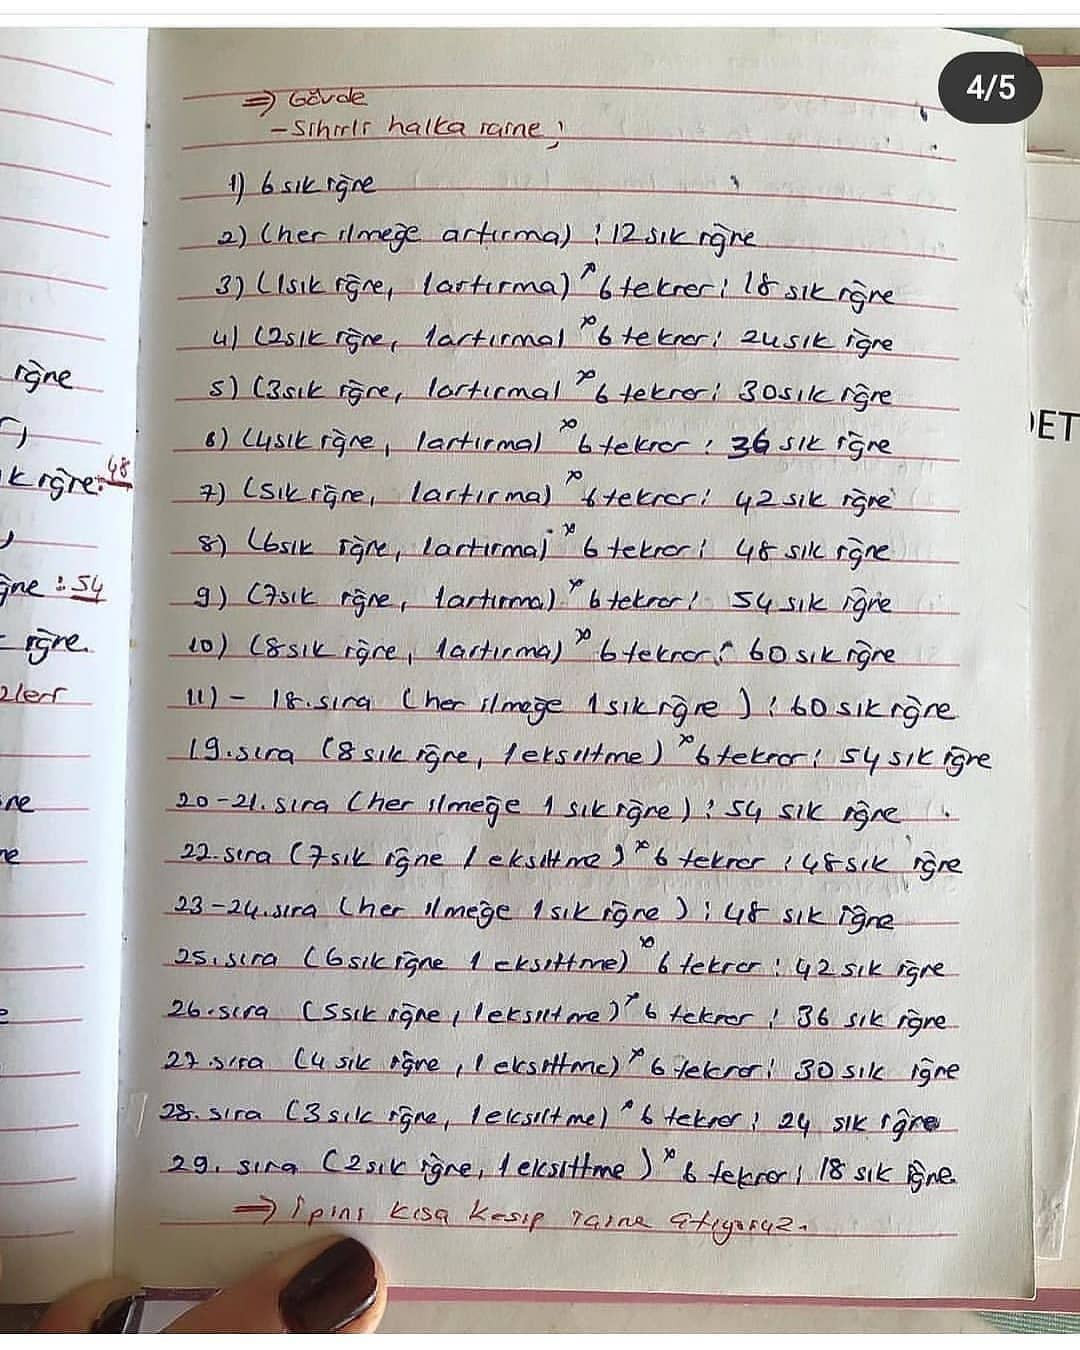 4/5
⇒ Gövde
- Sihirli halka içine ;
1) 6 sık iğne
2) (her ilmeğe artırma) : 12 sık iğne
3) (1sık iğne, 1artırma) * 6 tekrar : 18 sık iğne
4) (2sık iğne, 1artırma) * 6 tekrar : 24 sık iğne
5) (3sık iğne, 1artırma) * 6 tekrar : 30 sık iğne
6) (4sık iğne, 1artırma) * 6 tekrar : 36 sık iğne
7) (5ık iğne, 1artırma) * 6 tekrar : 42 sık iğne
8) (6sık iğne, 1artırma) * 6 tekrar : 48 sık iğne
9) (7sık iğne, 1artırma) * 6 tekrar : 54 sık iğne
10) (8sık iğne, 1artırma) * 6 tekrar : 60 sık iğne
11) - 18.sıra (her ilmeğe 1 sık iğne) : 60 sık iğne
19.sıra (8 sık iğne, 1 eksiltme) * 6 tekrar : 54 sık iğne
20-21.sıra (her ilmeğe 1 sık iğne) : 54 sık iğne
22.sıra (7sık iğne 1 eksiltme) * 6 tekrar : 48 sık iğne
23-24.sıra (her ilmeğe 1sık iğne) : 48 sık iğne
25.sıra (6sık iğne 1 eksiltme) * 6 tekrar : 42 sık iğne
26.sıra (5sık iğne, 1eksiltme) * 6 tekrar : 36 sık iğne
27.sıra (4 sık iğne, 1 eksiltme) * 6 tekrar : 30 sık iğne
28.sıra (3 sık iğne, 1eksiltme) * 6 tekrar : 24 sık iğne
29. sıra (2sık iğne, 1 eksiltme) * 6 tekrar : 18 sık iğne
⇒ ipini kısa kesip içine atıyoruz.
iğne
k iğne: 48
ğne : 54
iğne
ne
DET